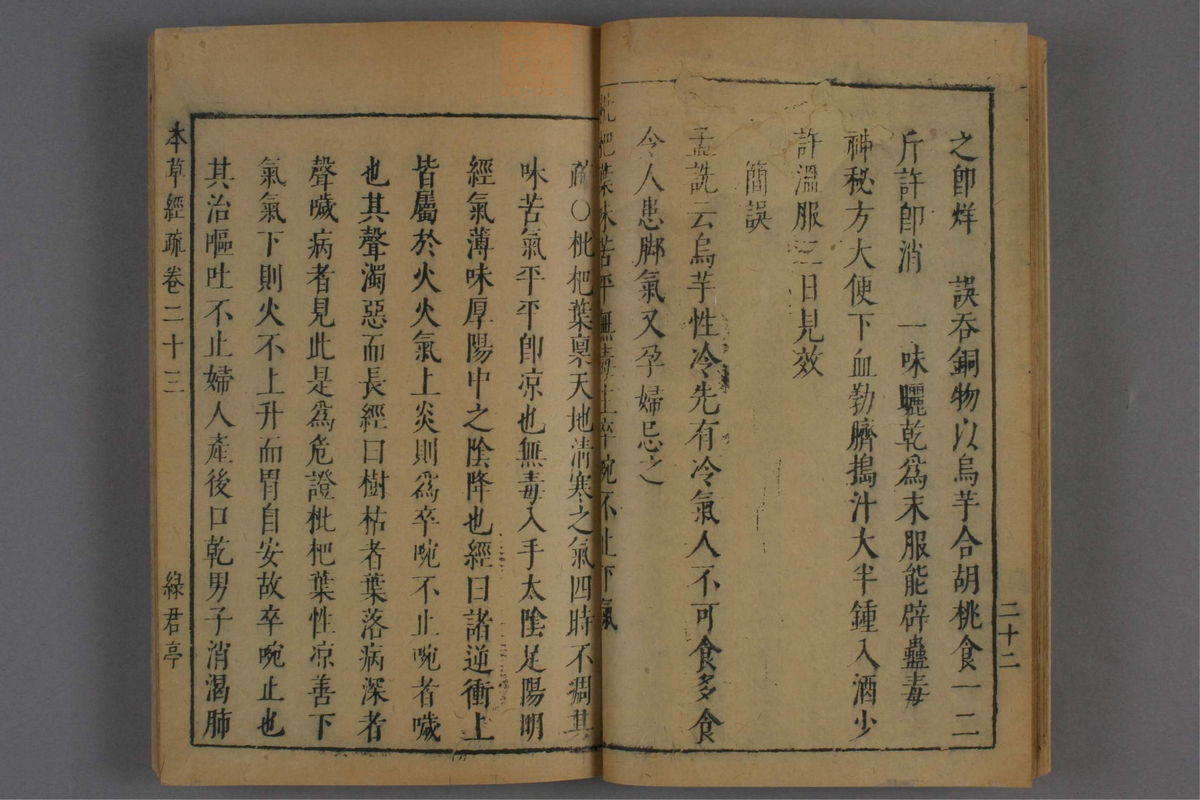 之卽烊　誤吞銅物以烏芋合胡桃食一二
斤許卽消　一味曬乾爲末服能辟蠱毒
神秘方大便下血勒臍搗汁大半鍾入酒少
許溫服三日見效
簡誤
孟詵云烏芋性冷先有冷氣人不可食多食
令人患脚氣又孕婦忌之
二十二
枇杷葉味苦平無毒主卒啘不止下氣
疏〇枇杷葉稟天地清寒之氣四時不凋其
味苦氣平平卽凉也無毒入手太陰足陽明
經氣薄味厚陽中之陰降也經曰諸逆衝上
皆屬於火火氣上炎則爲卒啘不止啘者噦
也其聲濁惡而長經曰樹枯者葉落病深者
聲噦病者見此是爲危證枇杷葉性凉善下
氣氣下則火不上升而胃自安故卒啘止也
其治嘔吐不止婦人產後口乾男子消渴肺
本草經疏卷二十三
綠君亭